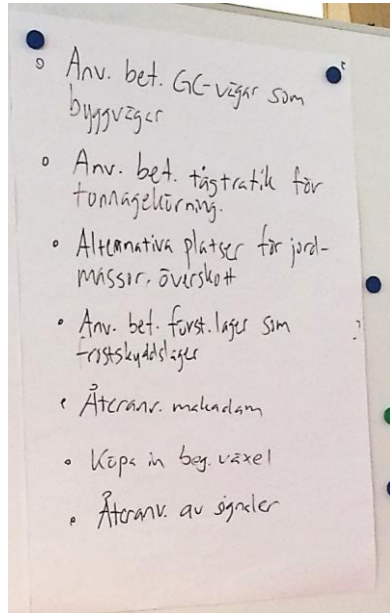 Anv. bet. GC-vägar som
byggvägar
Anv. bet. tågtrafik för
tonnagekörning.
Alternativa platser för jord-
massor, överskott
Anv. bet. först. lager som
frostskyddslager
Återanv. makadam
Köpa in beg. växel
Återanv. av signaler